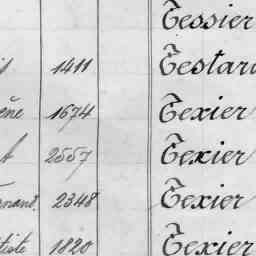 Tessier
1411 Testar
1674 Texier
2557 Texier
2348 Texier
1820 Texier